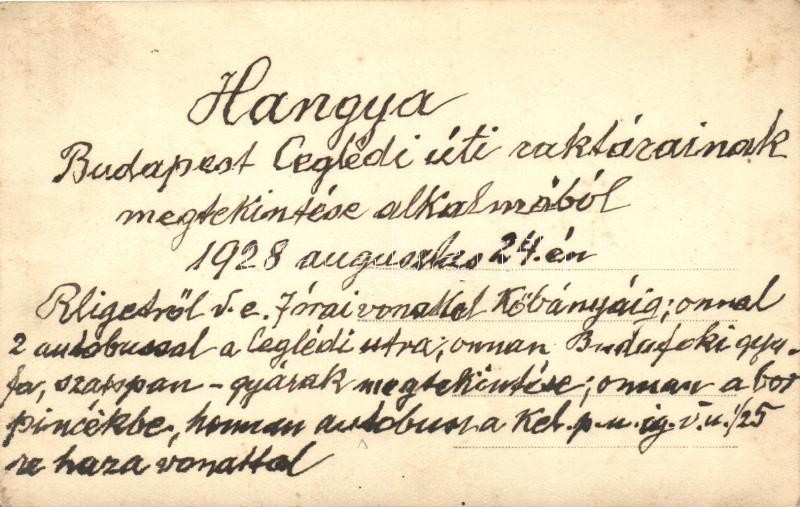 Hangya
Budapest Ceglédi úti raktárainak
megtekintése alkalmából
1928 augusztus 24.-én
Rligetről v. e. 7 órai vonattal Kőbányáig; onnal
2 autóbussal a Ceglédi utra; onnan Budafoki gyu-
fa, szappan - gyárak megtekintése; onnan a bor
pincékbe, honnan autóbuss a Kel. p. u. ig. v. u. 1/25
re haza vonattal